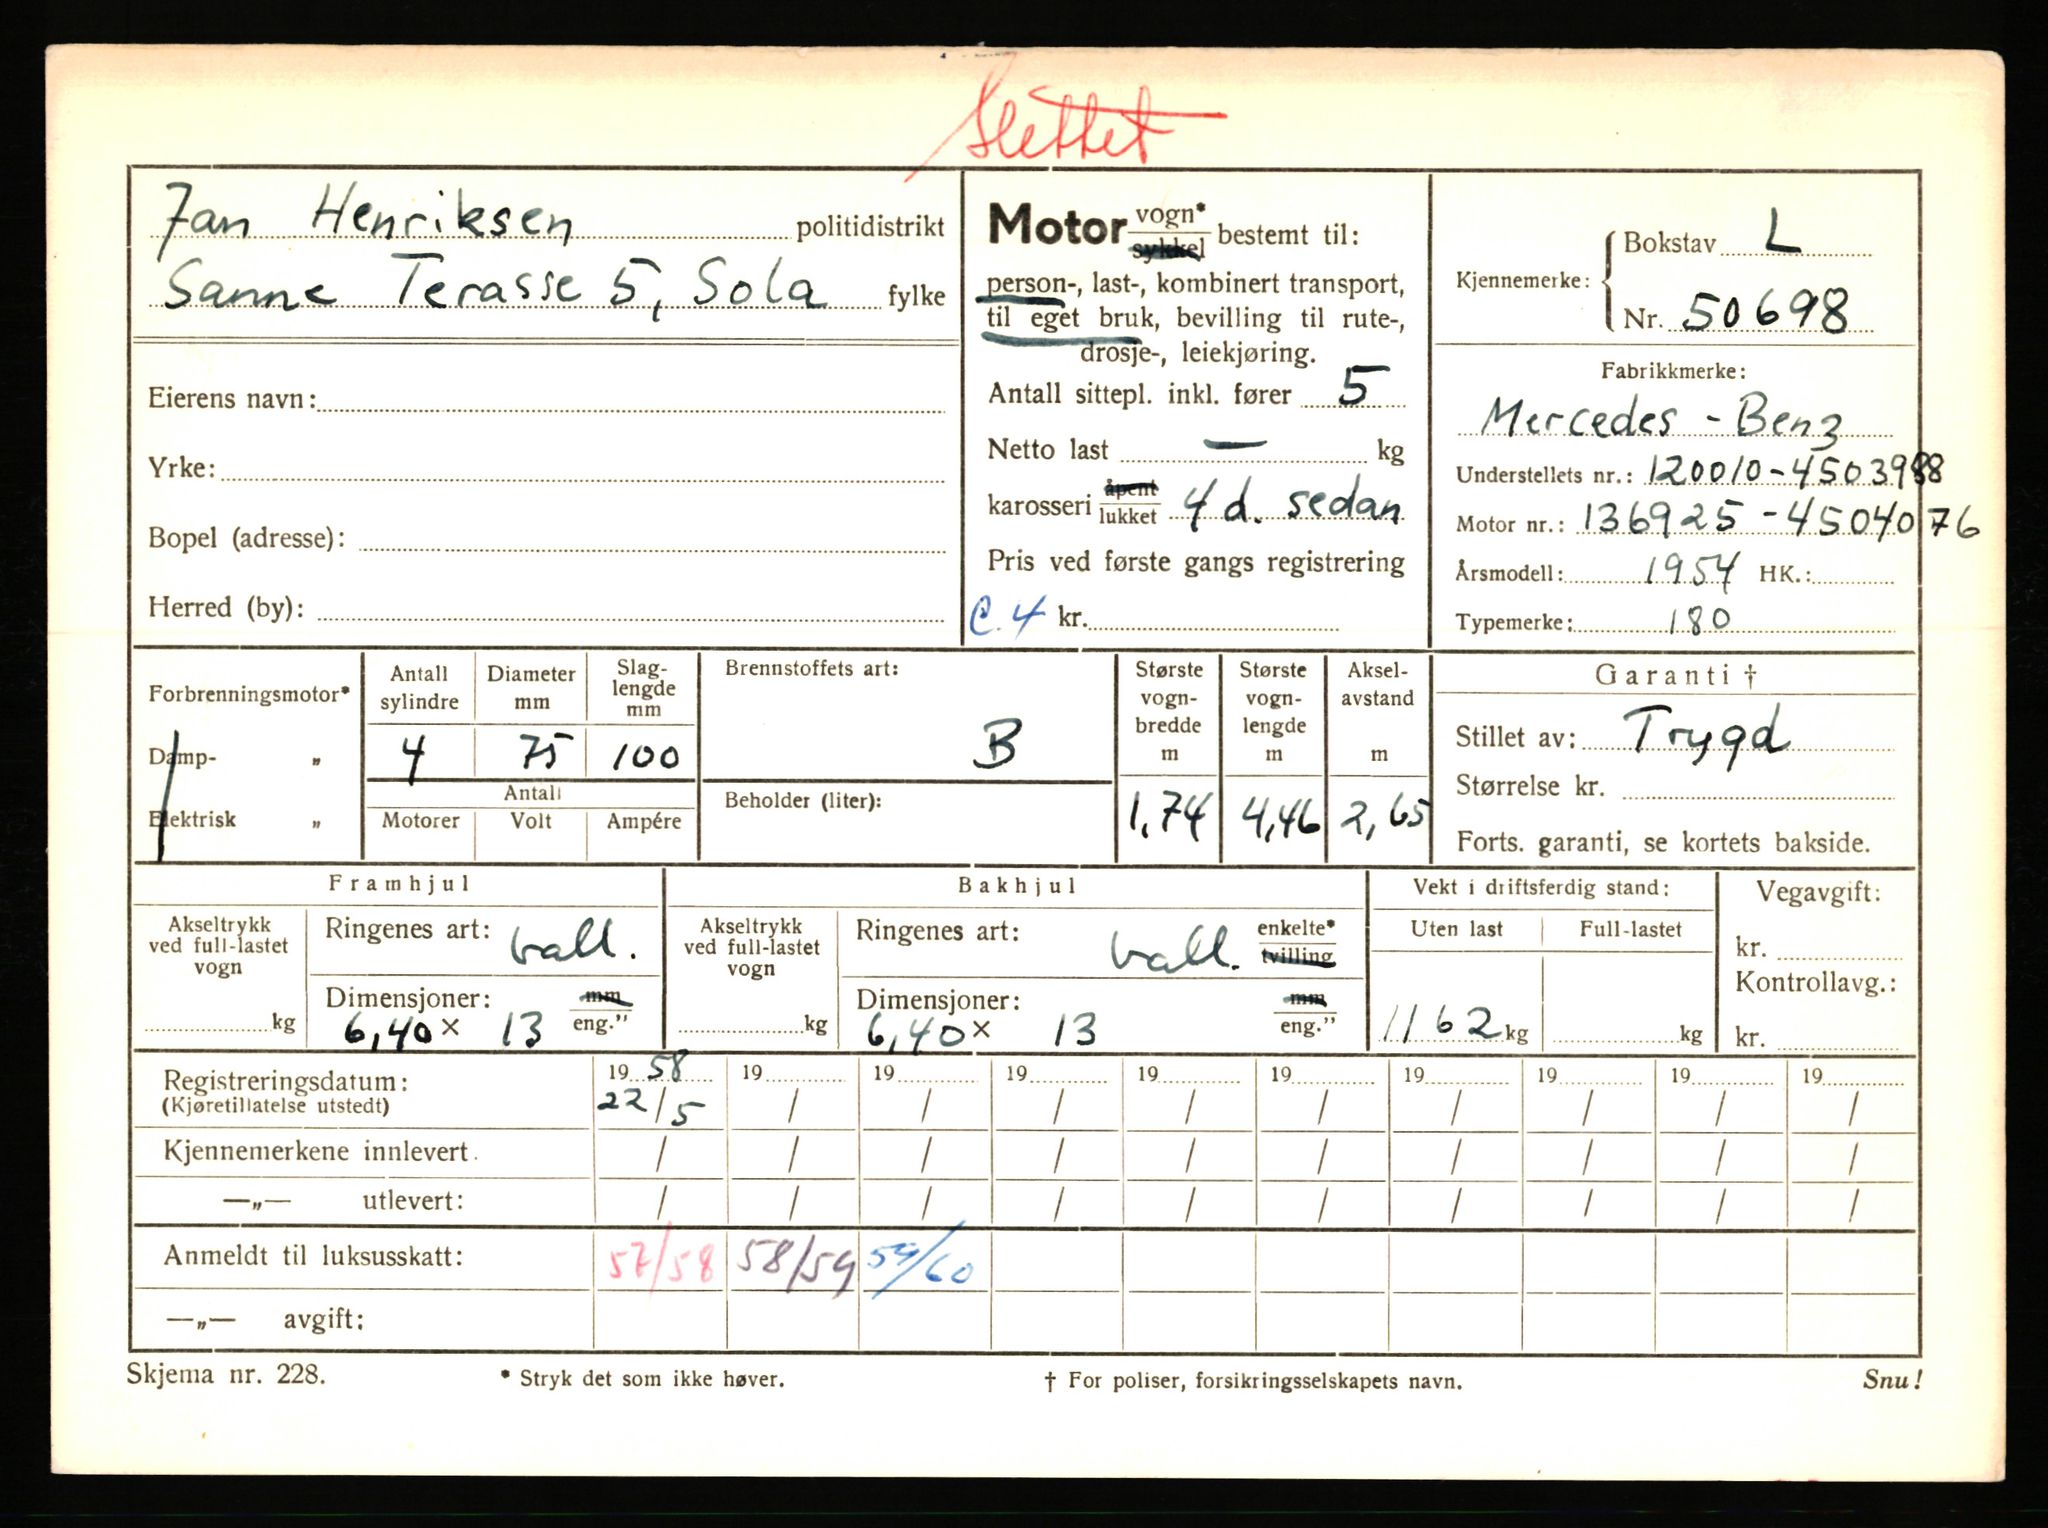 Slettet
Jan Henriksen politidistrikt
Sanne Terasse 5, Sola fylke
Eierens navn:
Yrke:
Bopel (adresse):
Herred (by):
Motor vogn* sykkel bestemt til:
person-, last-, kombinert transport,
til eget bruk, bevilling til rute-,
drosje-, leiekjøring.
Antall sittepl. inkl. fører 5
Netto last — kg
karosseri åpent lukket 4 d. sedan
Pris ved første gangs registrering
C. 4 kr.
Kjennemerke: Bokstav L
Nr. 50698
Fabrikkmerke:
Mercedes - Benz
Understellets nr.: 120010-4503988
Motor nr.: 136925-4504076
Årsmodell: 1954 HK.:
Typemerke: 180
Forbrenningsmotor*
Damp- „
Elektrisk „
Antall sylindre
4
Diameter mm
75
Slag-lengde mm
100
Antall
Motorer Volt Ampére
Brennstoffets art:
B
Beholder (liter):
Største vogn-bredde m
1,74
Største vogn-lengde m
4,46
Aksel-avstand m
2,65
Garanti †
Stillet av: Trygd
Størrelse kr.
Forts. garanti, se kortets bakside.
Framhjul
Akseltrykk ved full-lastet vogn
kg
Ringenes art: ball.
Dimensjoner: mm eng."
6,40 x 13
Bakhjul
Akseltrykk ved full-lastet vogn
kg
Ringenes art: ball. enkelte* tvilling
Dimensjoner: mm eng."
6,40 x 13
Vekt i driftsferdig stand:
Uten last Full-lastet
1162 kg kg
Vegavgift:
kr.
Kontrollavg.:
kr.
Registreringsdatum: 19 58 19 19 19 19 19 19 19 19 19
(Kjøretillatelse utstedt) 22/5 / / / / / / / / /
Kjennemerkene innlevert. / / / / / / / / / /
—„— utlevert: / / / / / / / / / /
Anmeldt til luksusskatt: 57/58 58/59 59/60
—„— avgift:
Skjema nr. 228. * Stryk det som ikke høver. † For poliser, forsikringsselskapets navn. Snu!